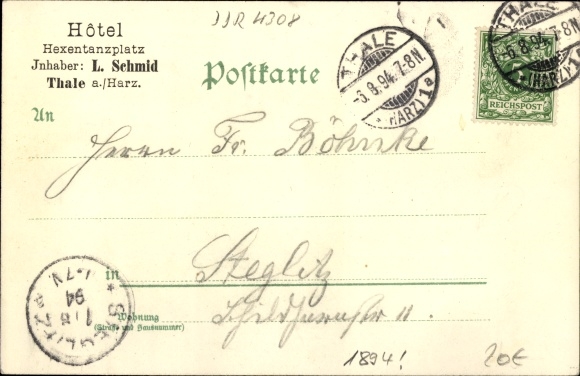 JJR 4308
Hôtel
Hexentanzplatz
Jnhaber: L. Schmid
Thale a./Harz.
Postkarte
THALE
-6.8.94.7-8N.
*(HARZ)1a
THALE
-6.8.94.7-8N.
*(HARZ)1a
REICHSPOST
An
Herrn Fr. Böhnke
in Steglitz
Wohnung
(Straße und Hausnummer)
11
STEGLITZ
94
1894!
20€